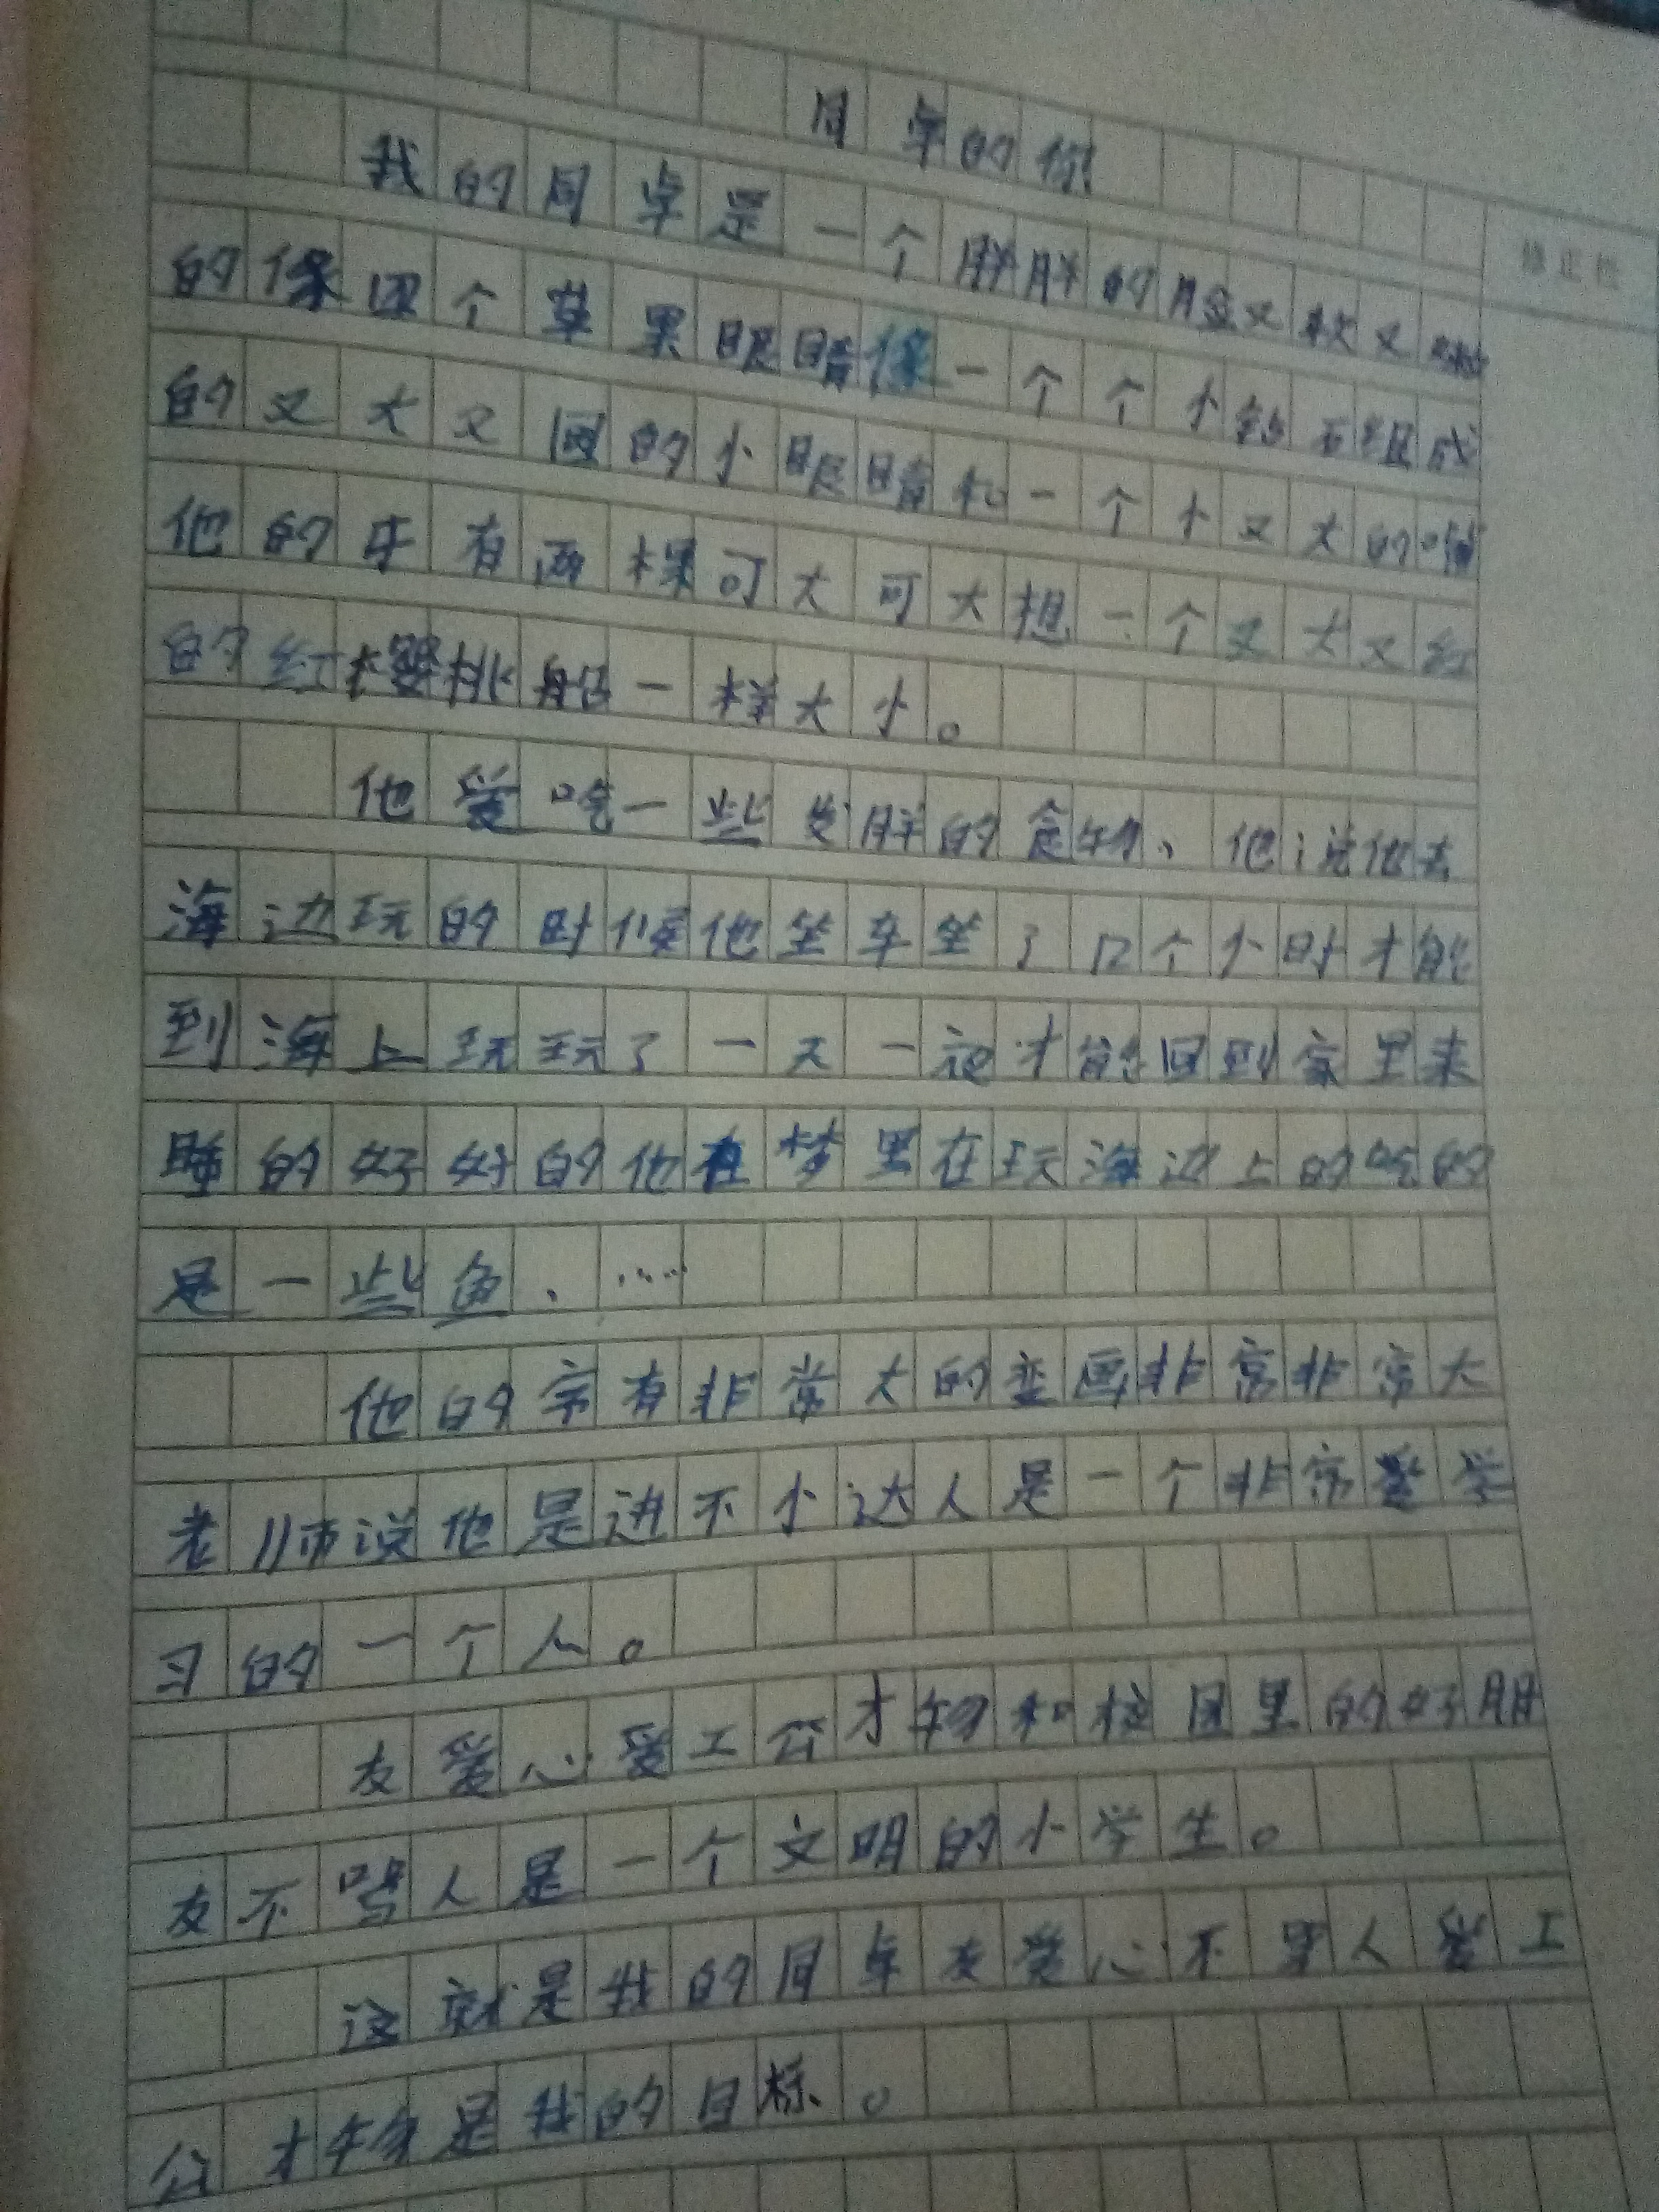 同卓的你
我的同卓是一个胖胖的脸又软又
的像四个苹果眼睛像一个个小钻石组成
的又大又圆的小眼睛和一个小又大的嘴
他的牙有两棵可大可大想一个又大又红
的红樱桃船一样大小。
他爱吃一些发胖的食物、他说他去
海边玩的时候他坐车坐了12个小时才能
到海上玩玩了一天一夜才能回到家里来
睡的好好的他在梦里在玩海边上的吃的
是一些鱼、……
他的字有非常大的变画非常非常大
老师说他是进不小达人是一个非常爱学
习的一个人。
友爱心爱工公才物和校园里的好朋
友不骂人是一个文明的小学生。
这就是我的同卓友爱心不骂人爱工
公才物是我的目标。
修正栏